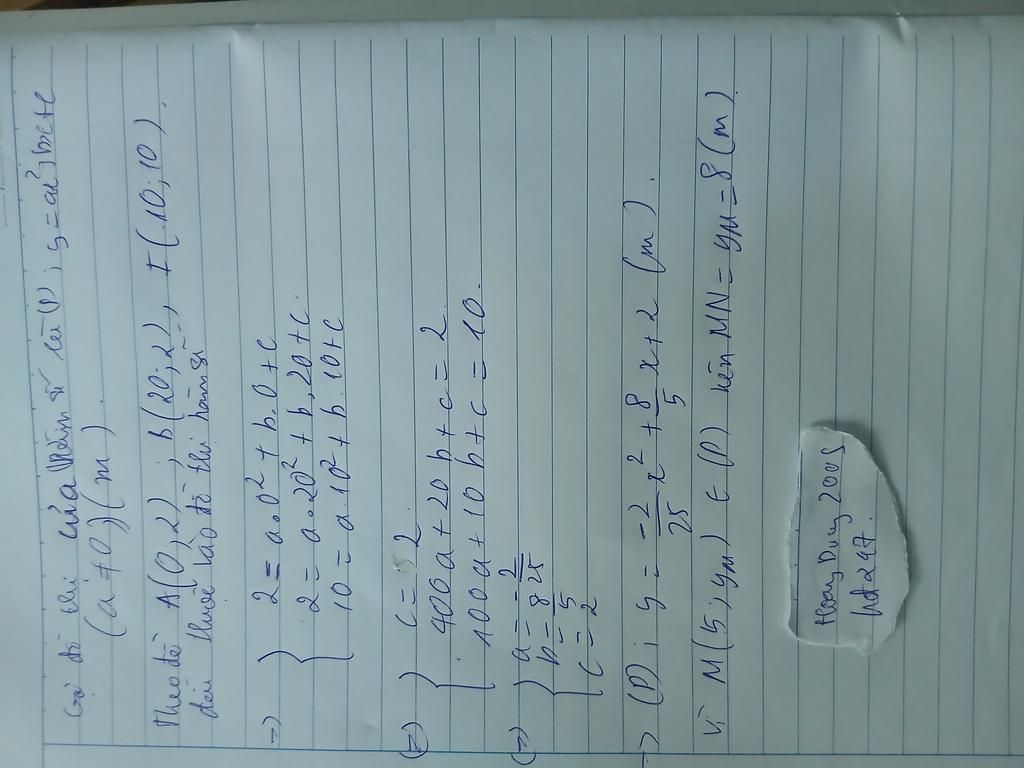 Gọi đồ thị của hàm số là (P): y = ax² + bx + c
(a ≠ 0) (m)
Theo đề A(0,2); B(20;2), I(10;10)
đều thuộc vào đồ thị hàm số
=> { 2 = a.0² + b.0 + c
2 = a.20² + b.20 + c
10 = a 10² + b.10 + c
(=) { c = 2
400a + 20b + c = 2
100a + 10b + c = 10.
(=) { a = -2/25
b = 8/5
c = 2
=> (P): y = -2/25 x² + 8/5 x + 2 (m).
Vì M(5; yM) ∈ (P) nên MN = yM = 8 (m)
Hoang Dung 2005
hd247.